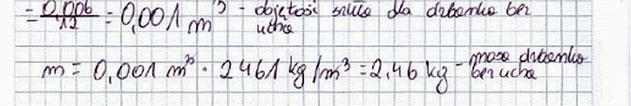 = 0,006/12 = 0,001 m³ - objętość szkła dla dzbanka bez ucha
m = 0,001 m³ · 2461 kg/m³ = 2,46 kg - masa dzbanka bez ucha